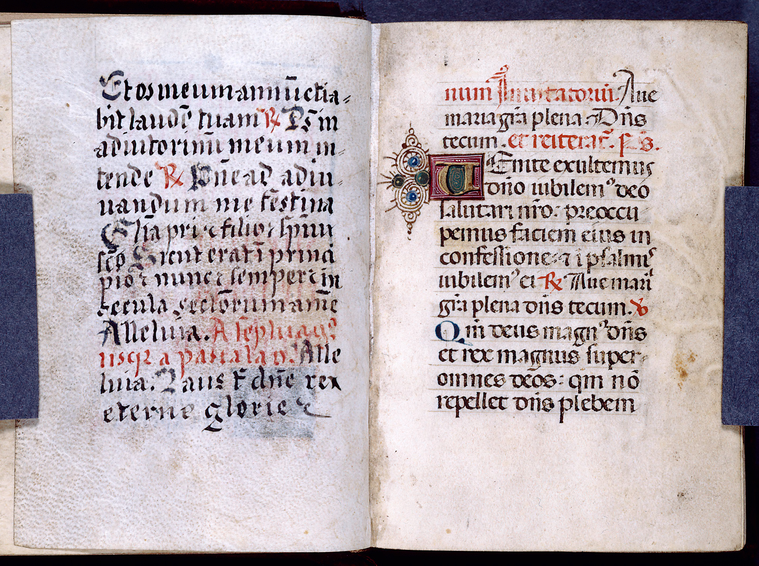 Et os meum annūctia⸗
bit laudē tuam ℟ Ds̄ in
adiutorium meum in⸗
tende ℟ Dn̄e ad adiu⸗
uandum me festina
Gl̄ia pr̄i ⁊ filio ⁊ sp̄iui
sc̄o Sicut erat ī princi
pio ⁊ nunc ⁊ semper ⁊ in
secula seclorum ame
Alleluia. A septuaḡ
usq̄ a pasca
luia. Laus t̄ dn̄e rex
eterne glorie
num Inuitatoriū. Aue
maria gr̄a plena Dn̄s
tecum. et reiterat̄. ps.
Uenite exultemus
dn̄o iubilem⁹ deo
salutari nr̄o: preoccu
pemus faciem eius in
confessione: ⁊ ī psalmis
iubilem⁹ ei ℟ Aue mari
gr̄a plena dn̄s tecum. ℣
Qm̄ deus magn⁹ dn̄s
et rex magnus super⸗
omnes deos: qm̄ nō
repellet dn̄s plebem